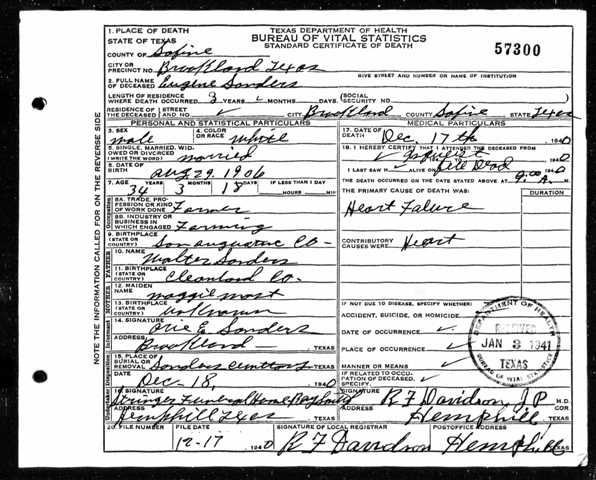 1. PLACE OF DEATH
STATE OF TEXAS
COUNTY OF Safine
TEXAS DEPARTMENT OF HEALTH
BUREAU OF VITAL STATISTICS
STANDARD CERTIFICATE OF DEATH
57300
CITY OR
PRECINCT NO. Brookland Texas
GIVE STREET AND NUMBER OR NAME OF INSTITUTION
2. FULL NAME
OF DECEASED Eugene Sanders
LENGTH OF RESIDENCE
WHERE DEATH OCCURRED 3 YEARS MONTHS DAYS
(SOCIAL
SECURITY NO.
RESIDENCE OF
THE DECEASED
STREET
AND NO. CITY Brookland COUNTY Safine STATE Texas
PERSONAL AND STATISTICAL PARTICULARS
MEDICAL PARTICULARS
3. SEX male
4. COLOR
OR RACE white
5. SINGLE, MARRIED, WID-
OWED OR DIVORCED
(WRITE THE WORD) married
6. DATE OF
BIRTH aug 29. 1906
7. AGE YEARS MONTHS DAYS IF LESS THAN 1 DAY
34 3 18 HOURS MIN.
8A. TRADE, PRO-
FESSION OR KIND
OF WORK DONE Farmer
8B. INDUSTRY OR
BUSINESS IN
WHICH ENGAGED Farming
9. BIRTHPLACE
(STATE OR
COUNTRY) San augustine Co-
10. NAME Walter Sanders
11. BIRTHPLACE
(STATE OR
COUNTRY) Co-
12. MAIDEN
NAME maggie
13. BIRTHPLACE
(STATE OR
COUNTRY) unknown
14. SIGNATURE E. Sanders
ADDRESS Brookland TEXAS
15. PLACE OF
BURIAL OR
REMOVAL Sanders TEXAS
DATE Dec-18, 1940
16. SIGNATURE Stringer Funeral Home
ADDRESS Hemphill Texas TEXAS
17. DATE OF
DEATH Dec, 17th 1940
18. I HEREBY CERTIFY THAT I ATTENDED THE DECEASED FROM
1940
I LAST SAW H ALIVE ON 1940
THE DEATH OCCURRED ON THE DATE STATED ABOVE AT 9:00 M.
THE PRIMARY CAUSE OF DEATH WAS: DURATION
Heart Falure
CONTRIBUTORY
CAUSES WERE: Heart
IF NOT DUE TO DISEASE, SPECIFY WHETHER:
ACCIDENT, SUICIDE, OR HOMICIDE
DATE OF OCCURRENCE
PLACE OF OCCURRENCE
MANNER OR MEANS
IF RELATED TO OCCU-
PATION OF DECEASED,
SPECIFY.
SIGNATURE R F Davidson, J P M.D. COR
ADDRESS Hemphill TEXAS
DEPARTMENT OF HEALTH
RECEIVED
JAN 3 1941
TEXAS
BUREAU OF VITAL STATISTICS
20. FILE NUMBER FILE DATE SIGNATURE OF LOCAL REGISTRAR POSTOFFICE ADDRESS
12-17 1940 R F Davidson Hemphill TEXAS
NOTE THE INFORMATION CALLED FOR ON THE REVERSE SIDE
FATHER
MOTHER